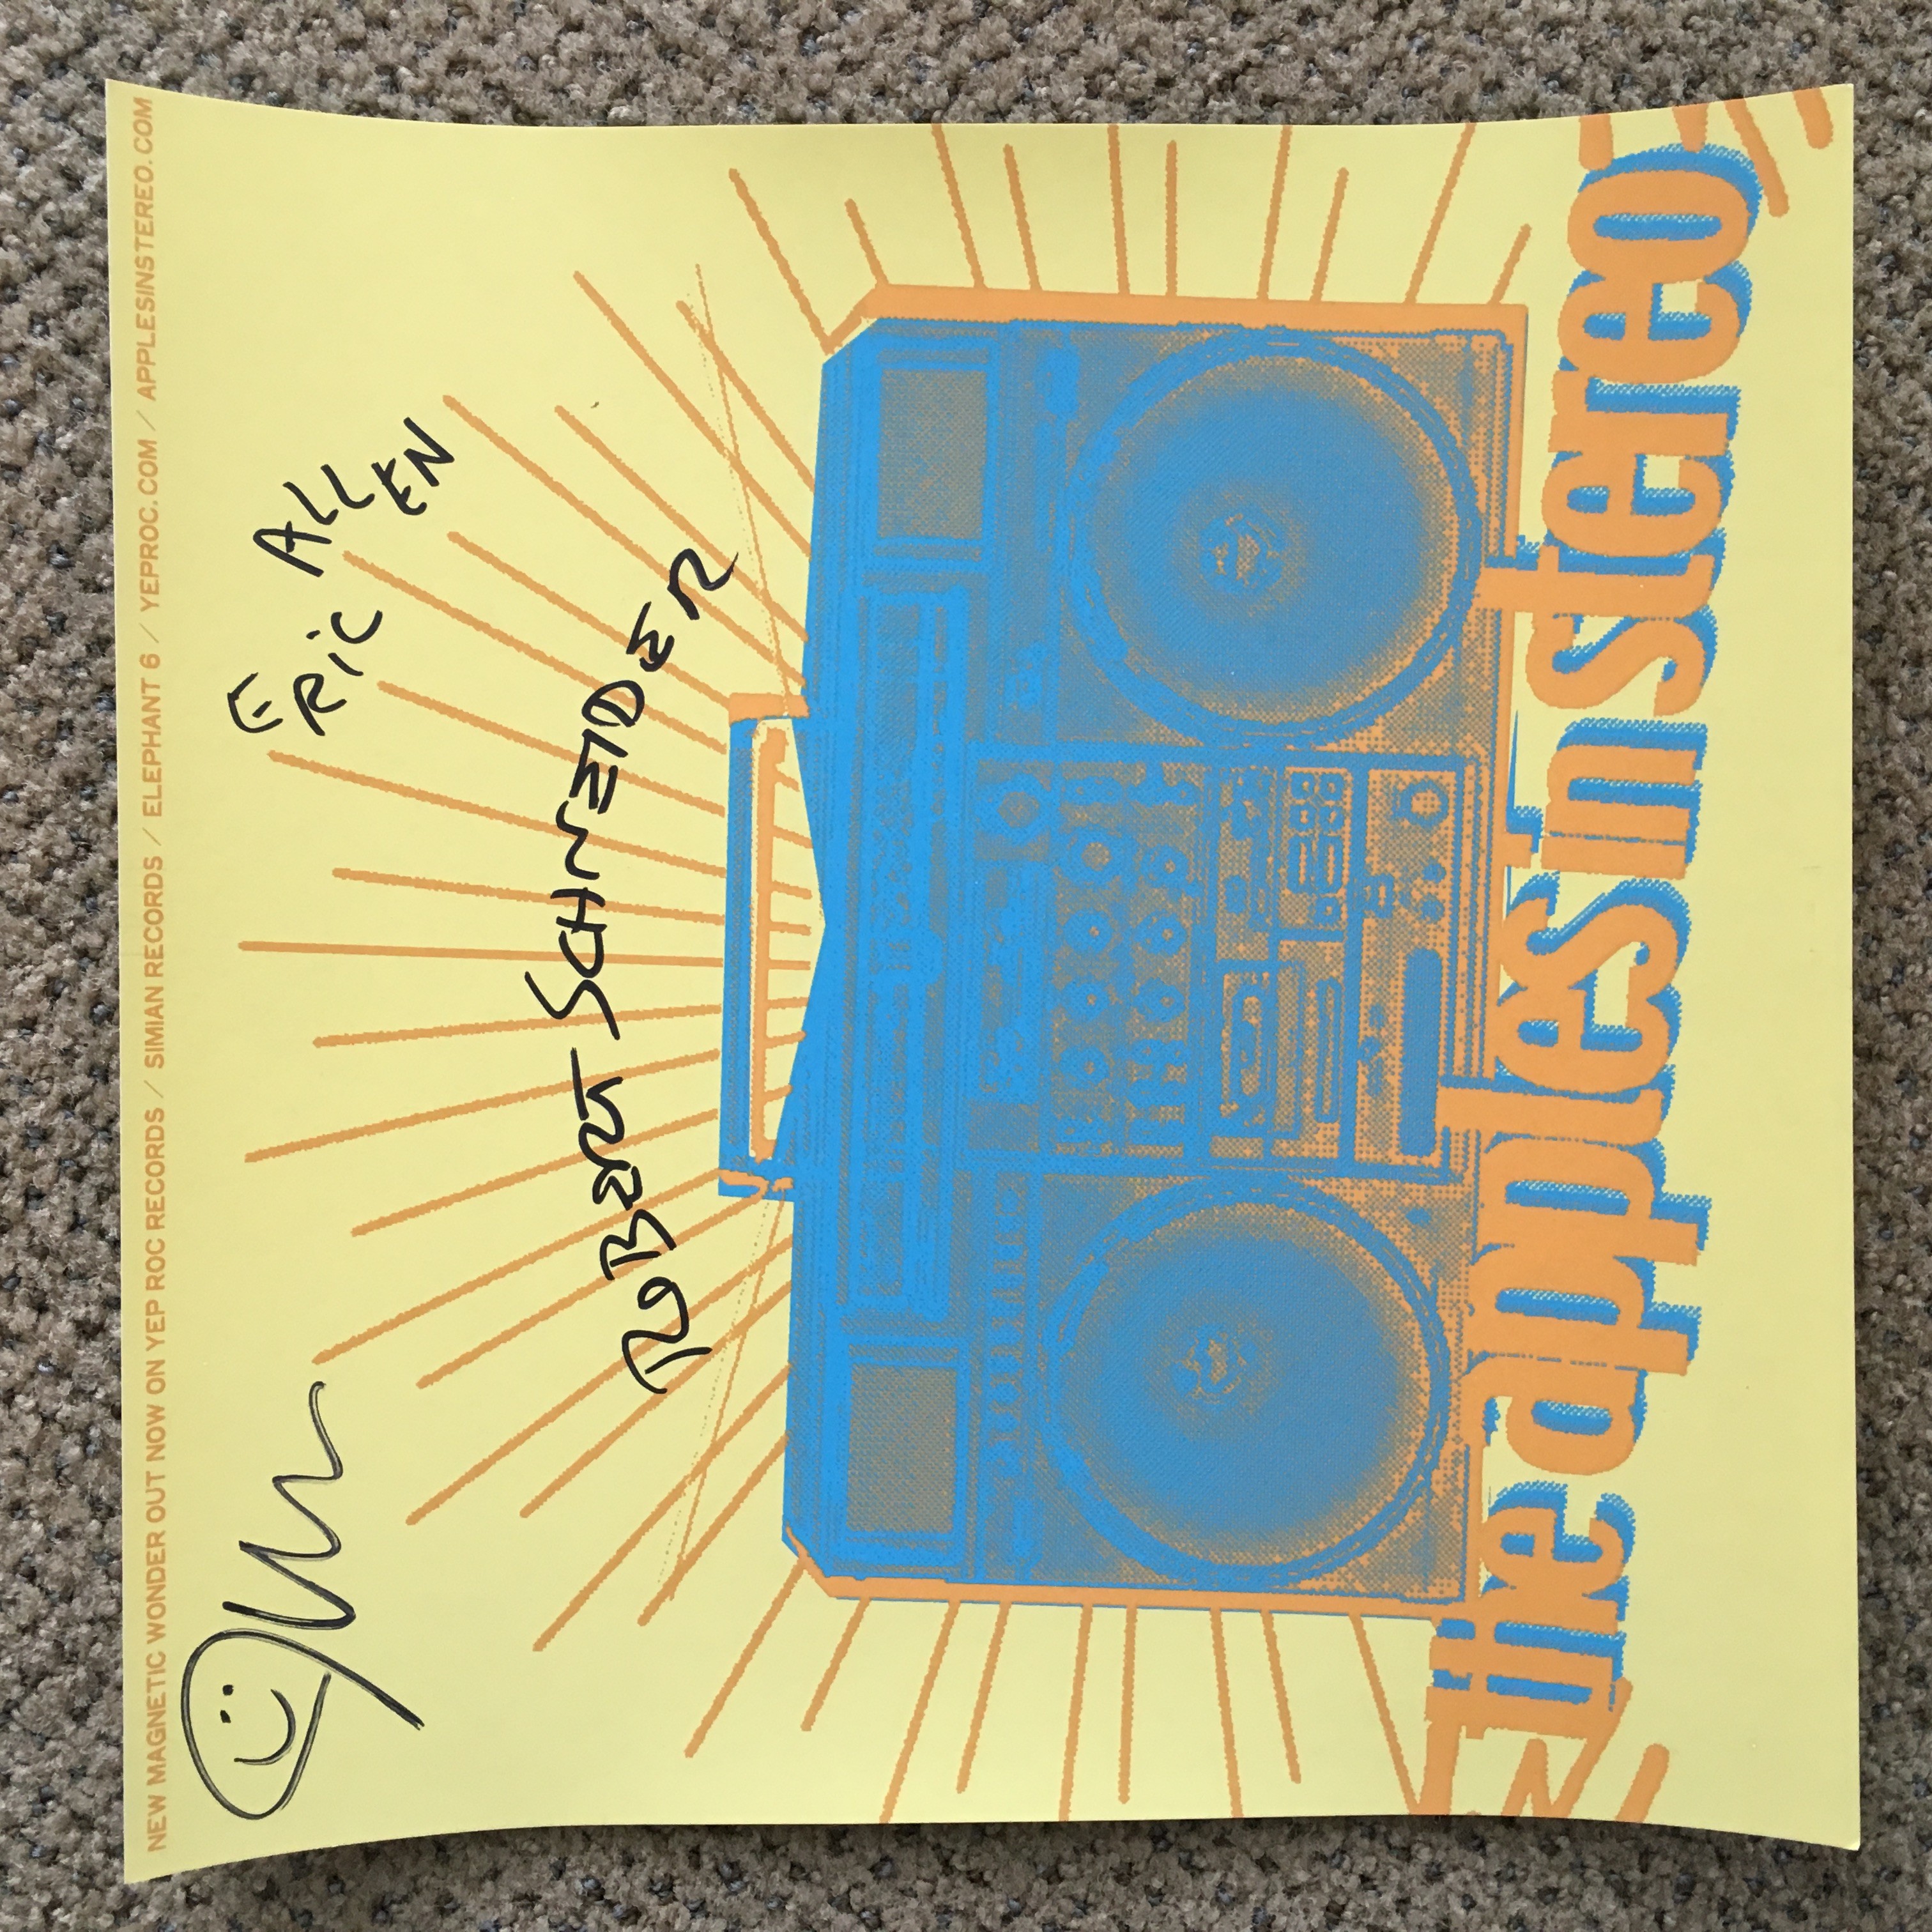 NEW MAGNETIC WONDER OUT NOW ON YEP ROC RECORDS / SIMIAN RECORDS / ELEPHANT 6 / YEPROC.COM / APPLESINSTEREO.COM
ERiC ALLEN
ROBERT SCHNEIDER
the apples in stereo